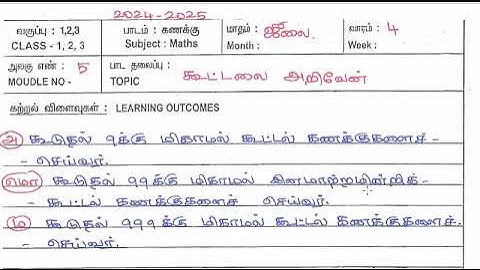 2024-2025
வகுப்பு : 1,2,3 பாடம் : கணக்கு மாதம் : ஜூலை. வாரம் : 4
CLASS - 1, 2, 3 Subject : Maths Month : Week :
அலகு எண் : 5 பாட தலைப்பு :
MOUDLE NO - TOPIC கூட்டலை அறிவேன்
கற்றல் விளைவுகள் : LEARNING OUTCOMES
அ கூடுதல் 9க்கு மிகாமல் கூட்டல் கணக்குகளைச்
- செய்வர்.
மொ கூடுதல் 99க்கு மிகாமல் இனமாற்றமின்றிக்
- கூட்டல் கணக்குகளைச் செய்வர்.
ம கூடுதல் 999க்கு மிகாமல் கூட்டல் கணக்குகளைச்.
- செய்வர்.